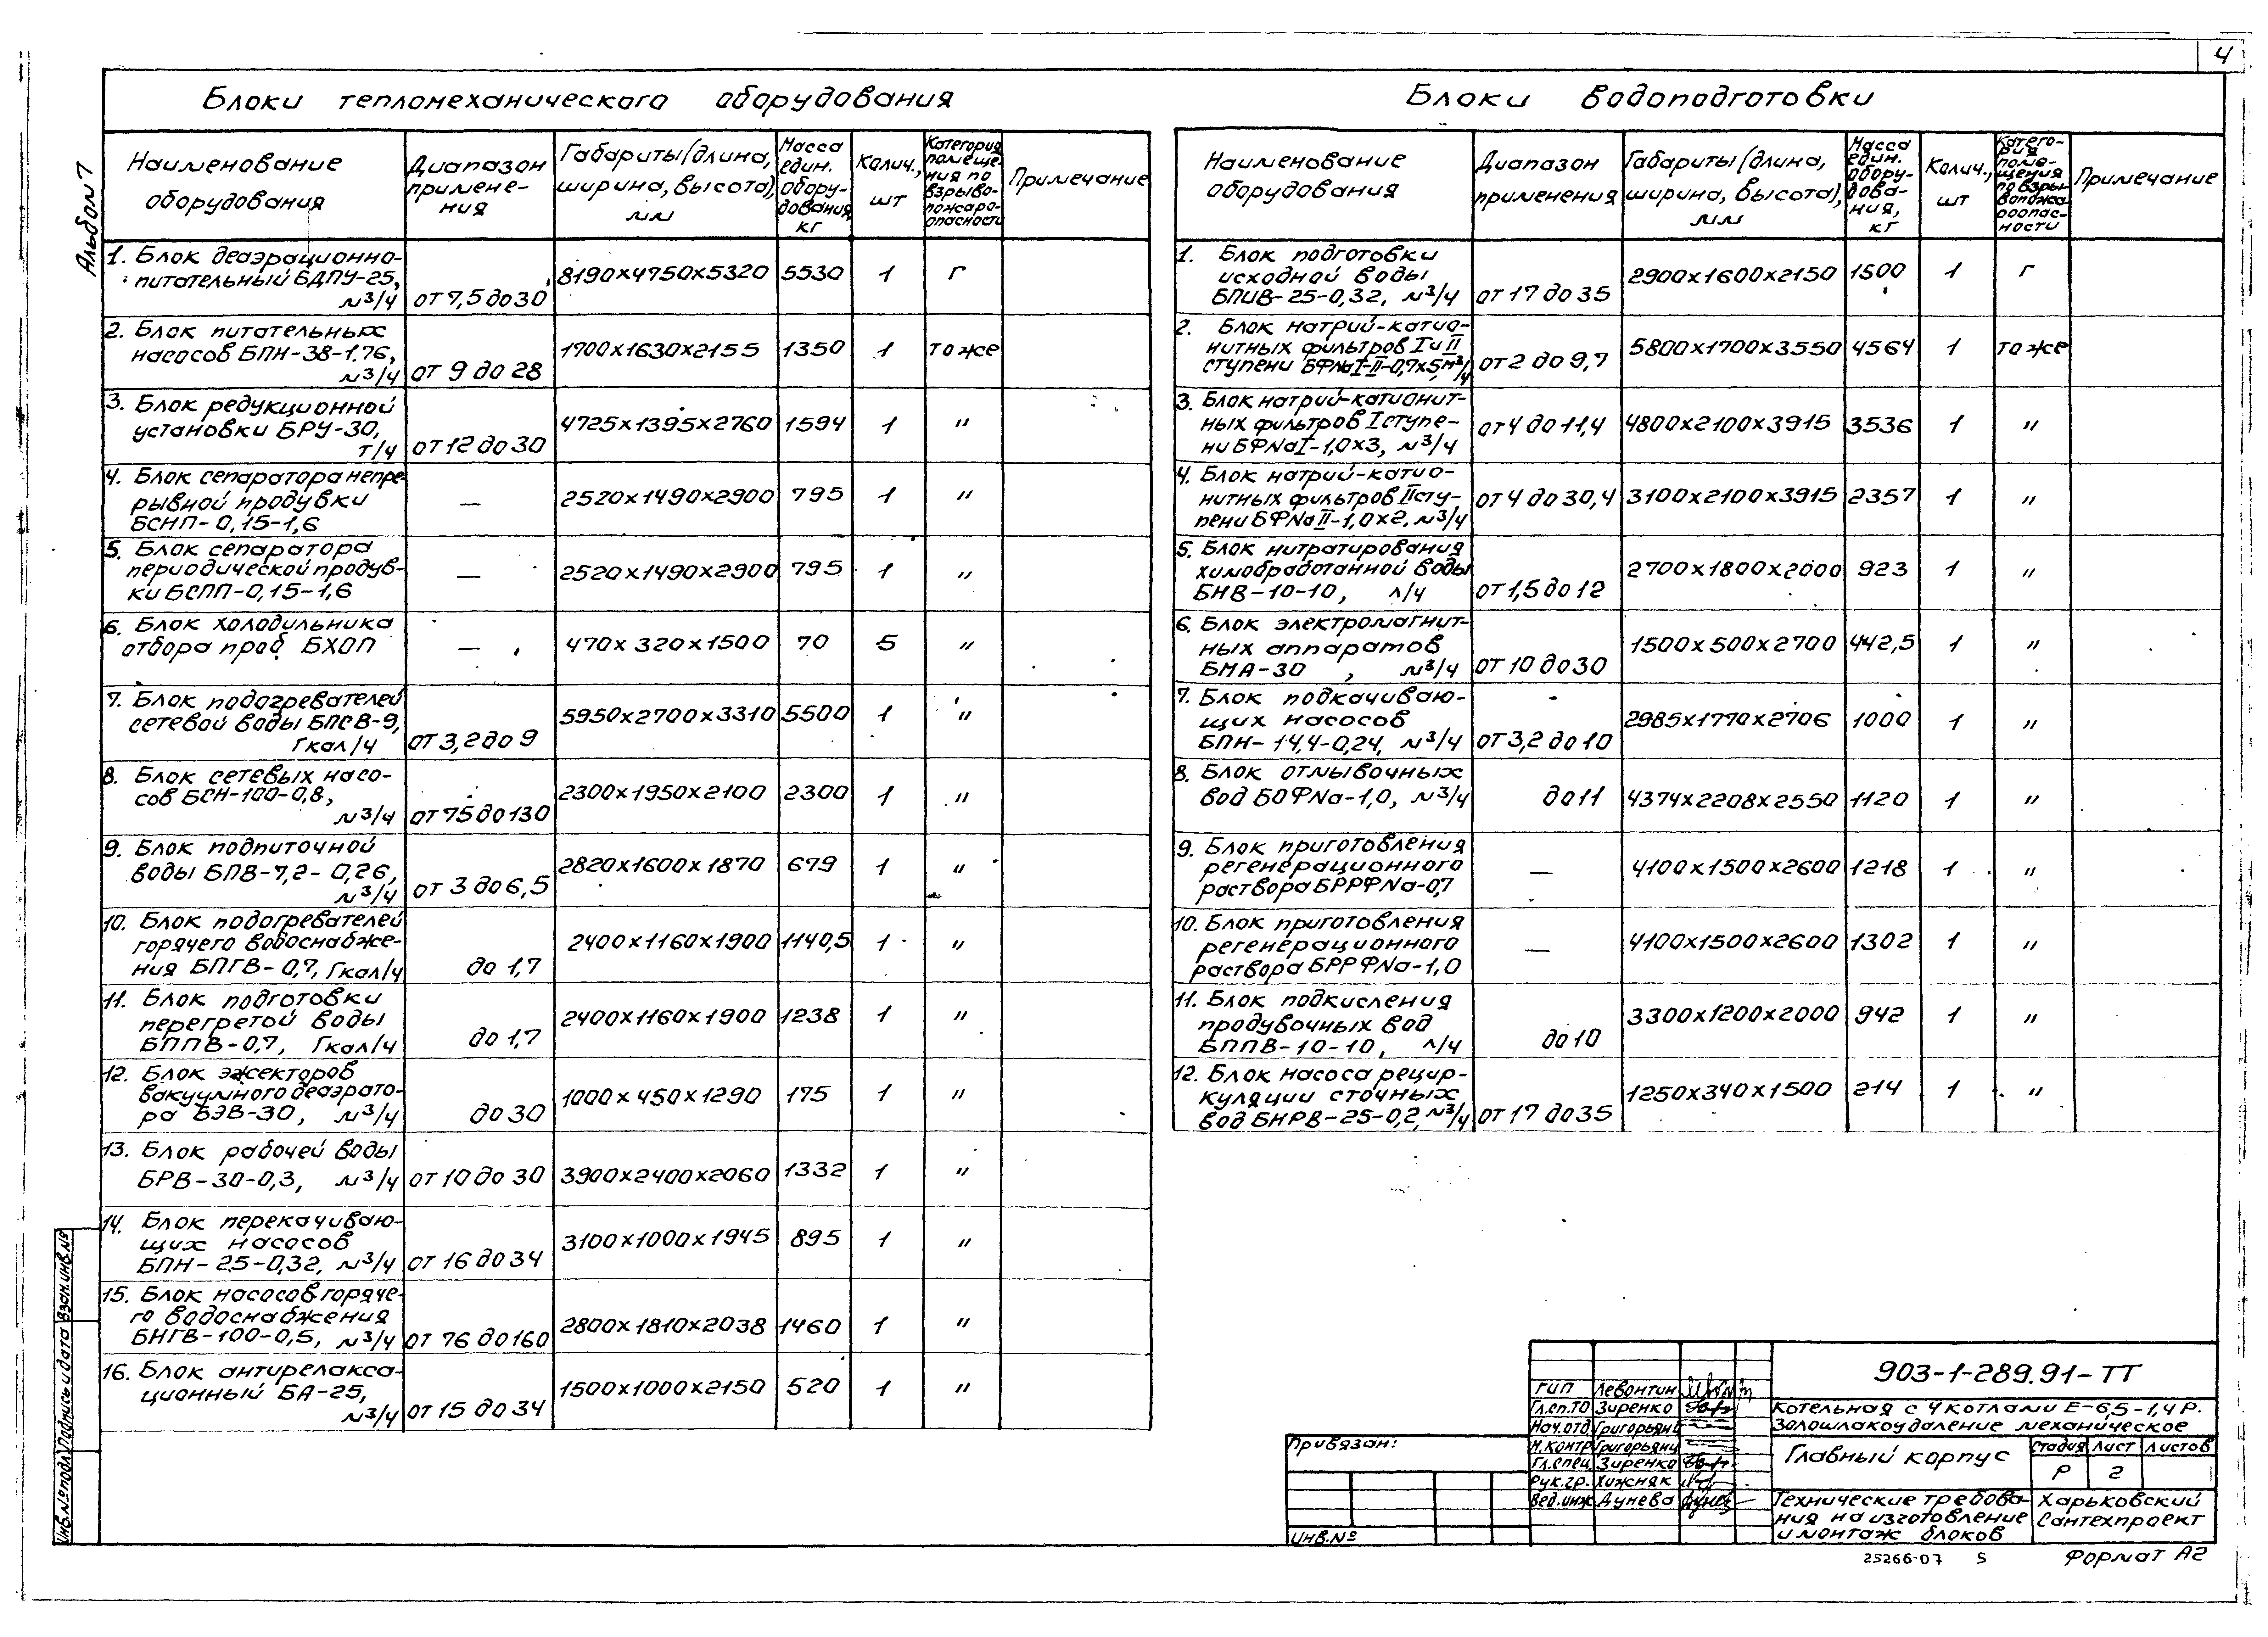 4
Альбом 7
Блоки тепломеханического оборудования
Наименование оборудования
Диапазон примене-ния
Габариты (длина, ширина, высота), мм
Масса един. обору-дования, кг
Колич., шт
Категория помеще-ния по взрыво-пожаро-опасности
Примечание
1. Блок деаэрационно-
питательный БДПУ-25,
м³/ч от 7,5 до 30 8190х4750х5320 5530 1 Г
2. Блок питательных
насосов БПН-38-1.76,
м³/ч от 9 до 28 1700х1630х2155 1350 1 то же
3. Блок редукционной
установки БРУ-30,
т/ч от 12 до 30 4725х1395х2760 1594 1 "
4. Блок сепаратора непре-
рывной продувки
БСНП-0,15-1,6 — 2520х1490х2900 795 1 "
5. Блок сепаратора
периодической продув-
ки БСПП-0,15-1,6 — 2520х1490х2900 795 1 "
6. Блок холодильника
отбора проб БХОП — 470х320х1500 70 5 "
7. Блок подогревателей
сетевой воды БПСВ-9,
Гкал/ч от 3,2 до 9 5950х2700х3310 5500 1 "
8. Блок сетевых насо-
сов БСН-100-0,8,
м³/ч от 75 до 130 2300х1950х2100 2300 1 "
9. Блок подпиточной
воды БПВ-7,2-0,26,
м³/ч от 3 до 6,5 2820х1600х1870 679 1 "
10. Блок подогревателей
горячего водоснабже-
ния БПГВ-0,7, Гкал/ч до 1,7 2400х1160х1900 1140,5 1 "
11. Блок подготовки
перегретой воды
БППВ-0,7, Гкал/ч до 1,7 2400х1160х1900 1238 1 "
12. Блок эжекторов
вакуумного деаэрато-
ра БЭВ-30, м³/ч до 30 1000х450х1290 175 1 "
13. Блок рабочей воды
БРВ-30-0,3, м³/ч от 10 до 30 3900х2400х2060 1332 1 "
14. Блок перекачиваю-
щих насосов
БПН-25-0,32, м³/ч от 16 до 34 3100х1000х1945 895 1 "
15. Блок насосов горяче-
го водоснабжения
БНГВ-100-0,5, м³/ч от 76 до 160 2800х1810х2038 1460 1 "
16. Блок антирелакса-
ционный БА-25,
м³/ч от 15 до 34 1500х1000х2150 520 1 "
Блоки водоподготовки
Наименование оборудования
Диапазон применения
Габариты (длина, ширина, высота), мм
Масса един. обору-дова-ния, кг
Колич., шт
Катего-рия поме-щения по взры-
Примечание
1. Блок подготовки
исходной воды
БПИВ-25-0,32, м³/ч от 17 до 35 2900х1600х2150 1500 1 Г
2. Блок натрий-катио-
нитных фильтров I и II
ступени БФNaI-II-0,7х5, м³/ч от 2 до 9,7 5800х1700х3550 4564 1 то же
3. Блок натрий-катионит-
ных фильтров I ступе-
ни БФNaI-1,0х3, м³/ч от 4 до 11,4 4800х2100х3915 3536 1 "
4. Блок натрий-катио-
нитных фильтров II сту-
пени БФNaII-1,0х2, м³/ч от 4 до 30,4 3100х2100х3915 2357 1 "
5. Блок нитратирования
химобработанной воды
БНВ-10-10, л/ч от 1,5 до 12 2700х1800х2000 923 1 "
6. Блок электромагнит-
ных аппаратов
БМА-30 , м³/ч от 10 до 30 1500х500х2700 442,5 1 "
7. Блок подкачиваю-
щих насосов
БПН-14,4-0,24, м³/ч от 3,2 до 10 2985х1770х2706 1000 1 "
8. Блок отмывочных
вод БОФNa-1,0, м³/ч до 11 4374х2208х2550 1120 1 "
9. Блок приготовления
регенерационного
раствора БРРФNa-0,7 — 4100х1500х2600 1218 1 "
10. Блок приготовления
регенерационного
раствора БРРФNa-1,0 — 4100х1500х2600 1302 1 "
11. Блок подкисления
продувочных вод
БППВ-10-10, л/ч до 10 3300х1200х2000 942 1 "
12. Блок насоса рецир-
куляции сточных
вод БНРВ-25-0,2, м³/ч от 17 до 35 1250х340х1500 214 1 "
Инв.№подл. Подпись и дата Взам.инв.№
Привязан:
Инв.№
ГИП Левонтин
Гл.сп.ТО Зиренко
Нач.отд. Григорьянц
Н.контр Григорьянц
Гл.спец. Зиренко
Рук.гр. Хижняк
Вед.инж Дунева
903-1-289.91-ТТ
Котельная с 4 котлами Е-6,5-1,4Р.
Золошлакоудаление механическое
Главный корпус
Стадия Лист Листов
Р 2
Технические требова-
ния на изготовление
и монтаж блоков
Харьковский
Сантехпроект
25266-07 5
Формат А2